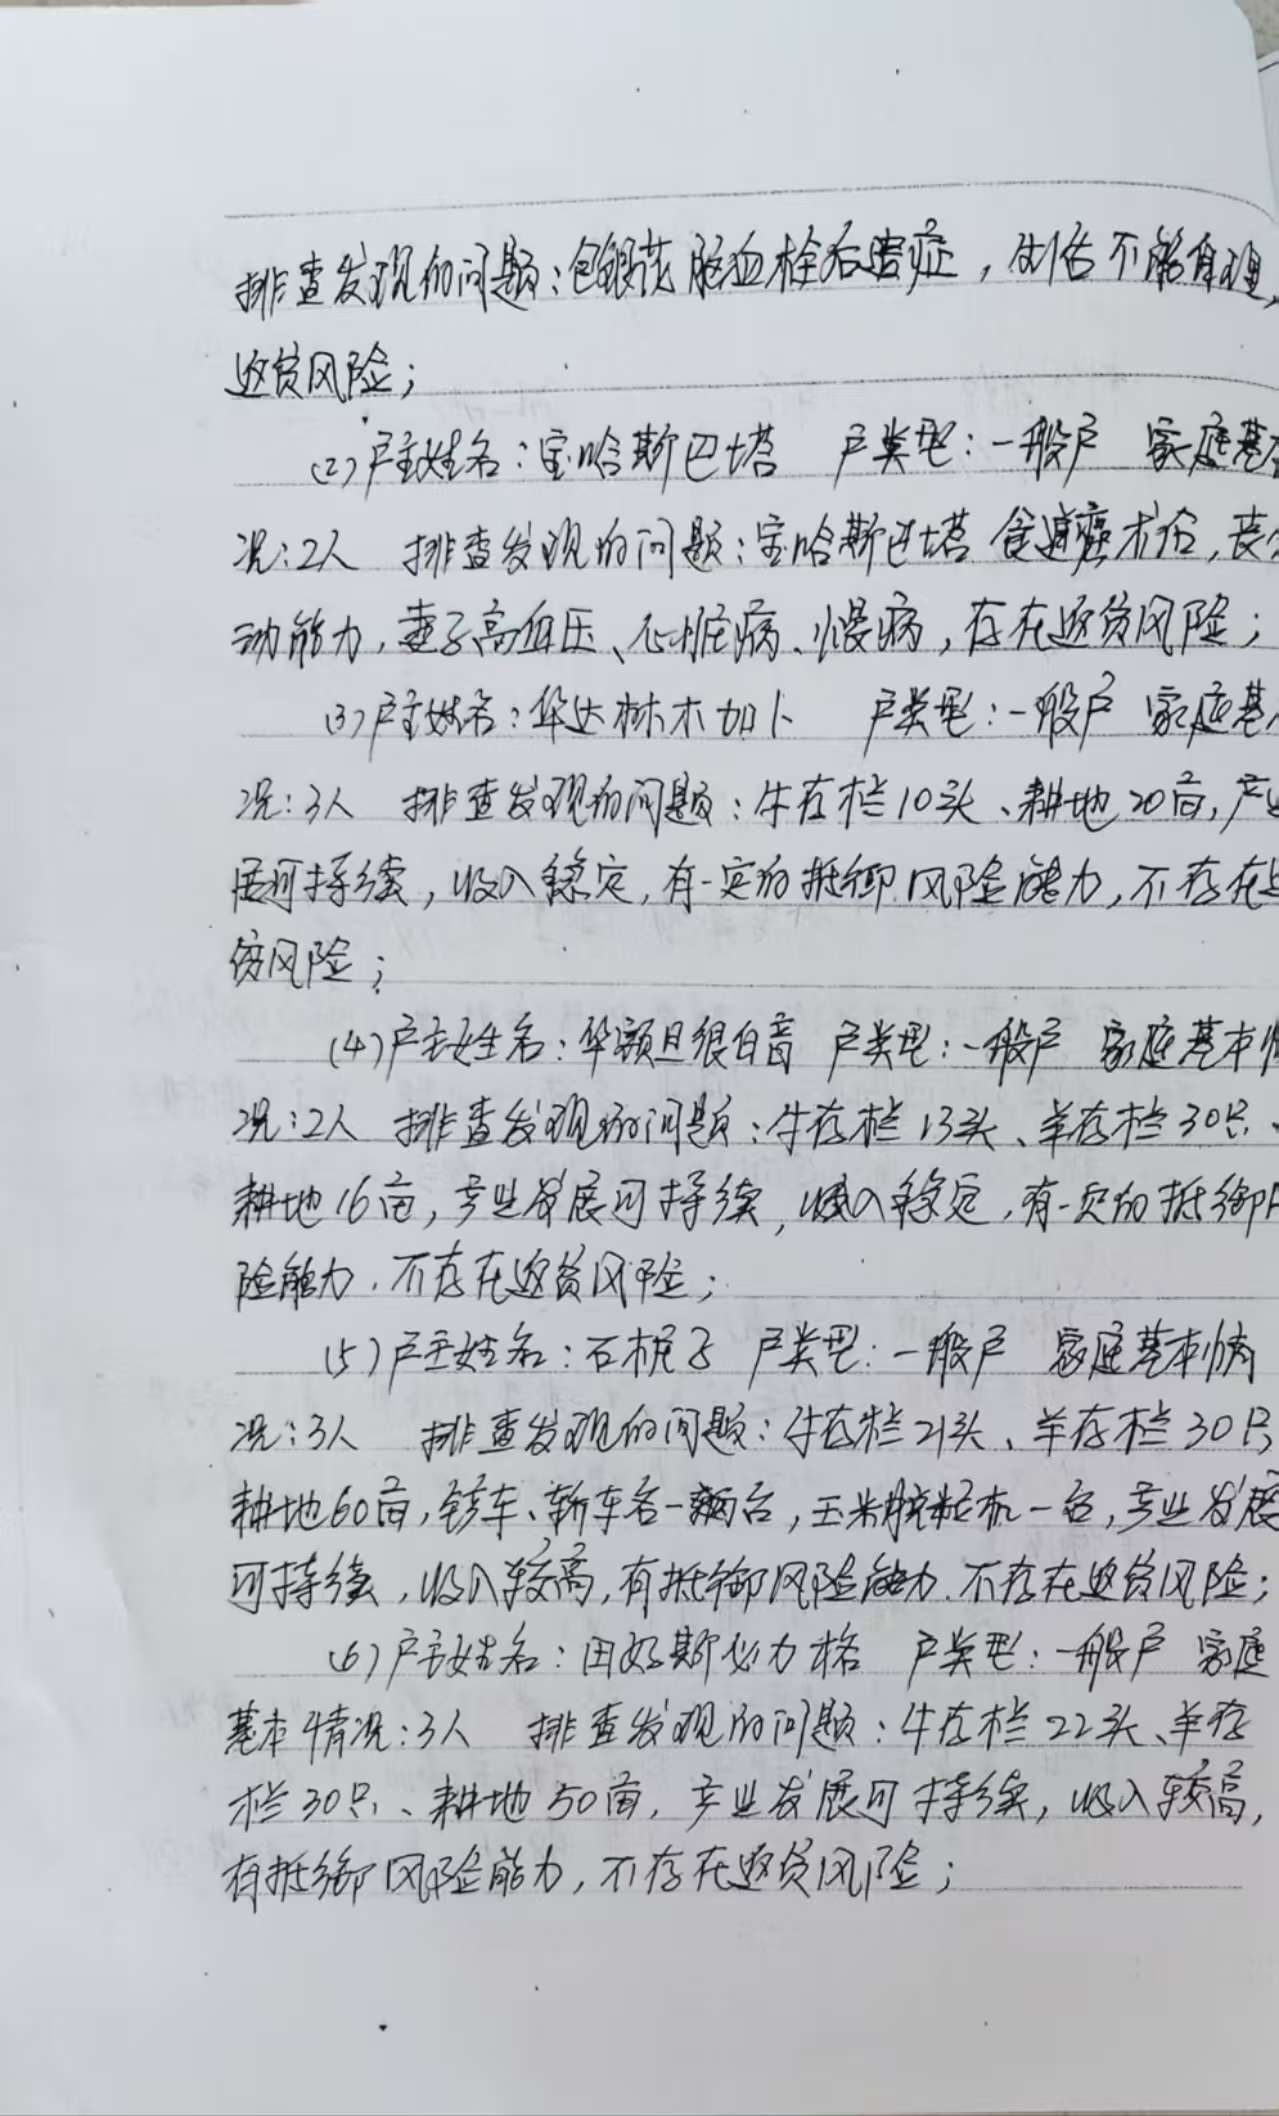 排查发现的问题：包银花脑血栓后遗症，生活不能自理，
返贫风险；
(2)户主姓名：宝哈斯巴塔 户类型：一般户 家庭基本
况：2人 排查发现的问题：宝哈斯巴塔 食道癌术后，丧
动能力，妻子高血压、心脏病、慢病，存在返贫风险；
(3)户主姓名：华达林木加卜 户类型：一般户 家庭基
况：3人 排查发现的问题：牛存栏10头、耕地20亩，产
展可持续，收入稳定，有一定的抵御风险能力，不存在
贫风险；
(4)户主姓名：华额旦很白音 户类型：一般户 家庭基本情
况：2人 排查发现的问题：牛存栏13头、羊存栏30只、
耕地16亩，产业发展可持续，收入稳定，有一定的抵御
险能力，不存在返贫风险；
(5)户主姓名：石栀子 户类型：一般户 家庭基本情
况：3人 排查发现的问题：牛存栏21头、羊存栏30只
耕地60亩，轿车、轿车各一辆台，玉米脱粒机一台，产业发展
可持续，收入较高，有抵御风险能力，不存在返贫风险；
(6)户主姓名：田好斯必力格 户类型：一般户 家庭
基本情况：3人 排查发现的问题：牛存栏22头、羊存
栏30只、耕地50亩，产业发展可持续，收入较高，
有抵御风险能力，不存在返贫风险；